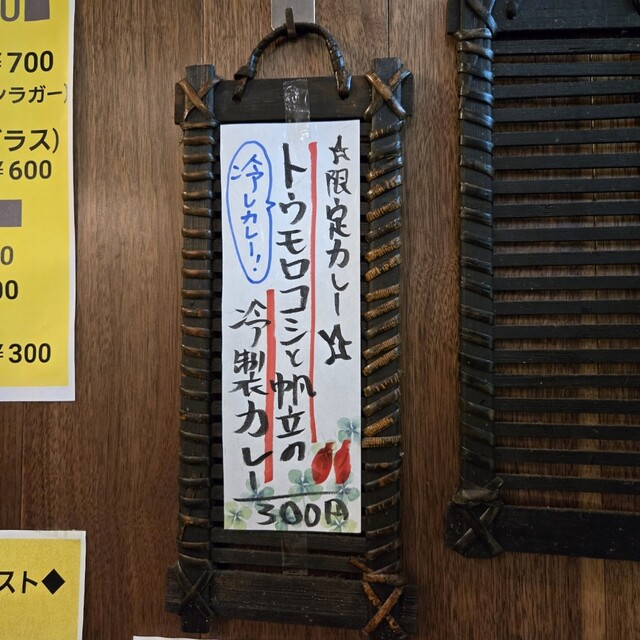 ☆限定カレー☆
トウモロコシと帆立の
冷製カレー
冷しカレー!!
300円
¥700
ンラガー)
グラス)
¥600
0
00
¥300
スト◆